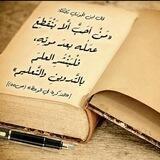 قال ابن الجوزي رحمه الله
«مَن أحَبَّ ألّا يَنْقَطِعَ
عمَلُه بعد موتِه،
فلْيَنْشُرِ العِلمَ
بالتَّدوينِ والتَّعليمِ»